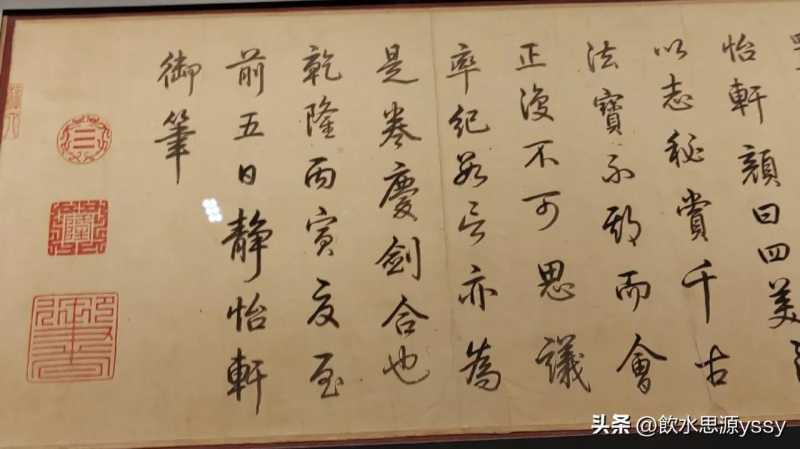 怡軒顏曰四美
以志秘賞千古
法寶不期而會
正復不可思議
率紀數言亦為
是卷慶劍合也
乾隆丙寅夏至
前五日靜怡軒
御筆
三
乾
隆
头条 @飲水思源yssy